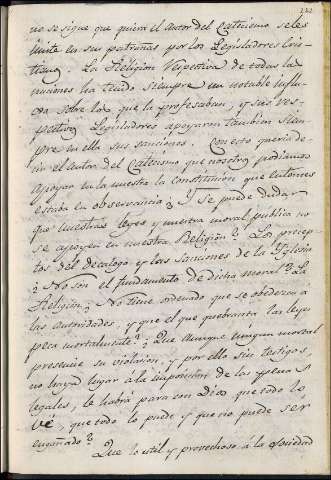 222
no se sigue que quiera el autor del Catecismo se les
imite en sus patrañas por los Legisladores Cris-
tianos. La Religion respectiva de todas las
naciones ha tenido siempre un notable influ-
xo sobre los que la profesaban, y sus res-
pectivos Legisladores apoyaron tambien siem-
pre en ella sus sanciones. Con esto queria de-
cir el autor del Catecismo que nosotros podiamos
apoyar en la nuestra la constitución que entonces
estaba en observancia. ¿Y se puede dudar
que nuestras leyes y nuestra moral publica no
se apoyen en nuestra Religión? Los precep-
tos del decalogo y las sanciones de la Iglesia
¿No son el fundamento de dicha moral? La
Religion ¿No tiene ordenado que se obedezca a
las autoridades, y que el que quebranta las leyes
peca mortalmente? ¿Que aunque ningun mortal
presencie su violacion, y por ello sin testigos,
no haya lugar a la imposicion de las penas
legales, le habrá para con Dios que todo lo
vé, que todo lo puede y que no puede ser
engañado?
Que lo util y provechoso á la sociedad